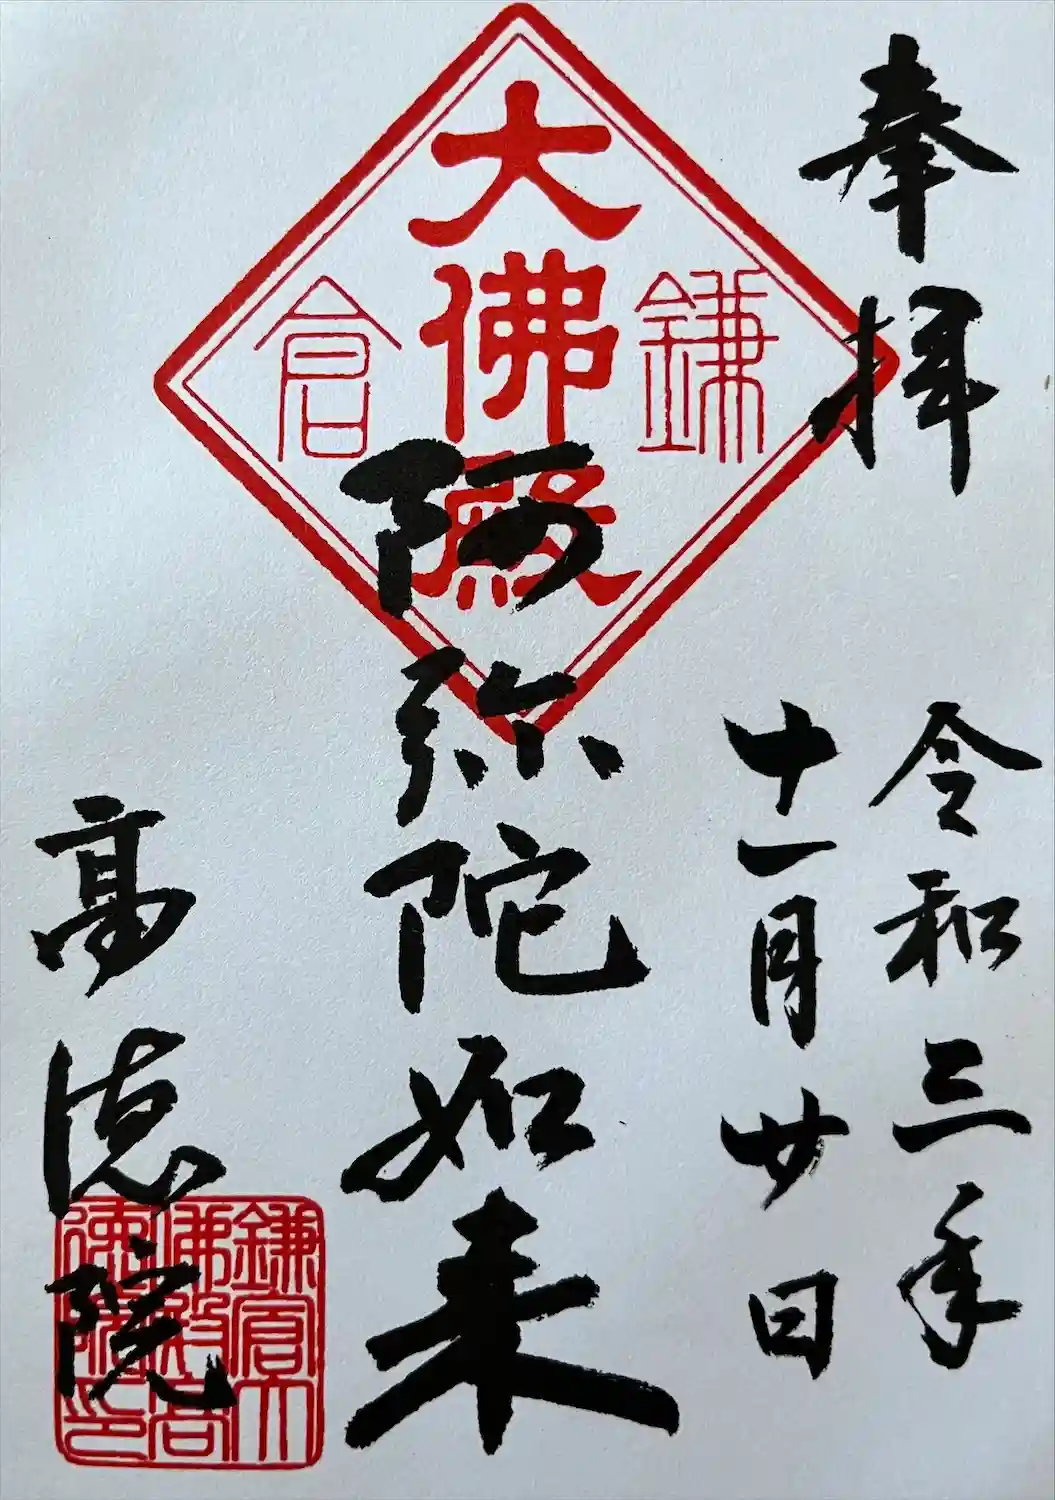 奉拝
令和三年
十一月廿日
鎌倉
大佛殿
阿弥陀如来
高徳院
鎌倉大
佛殿高
徳院印